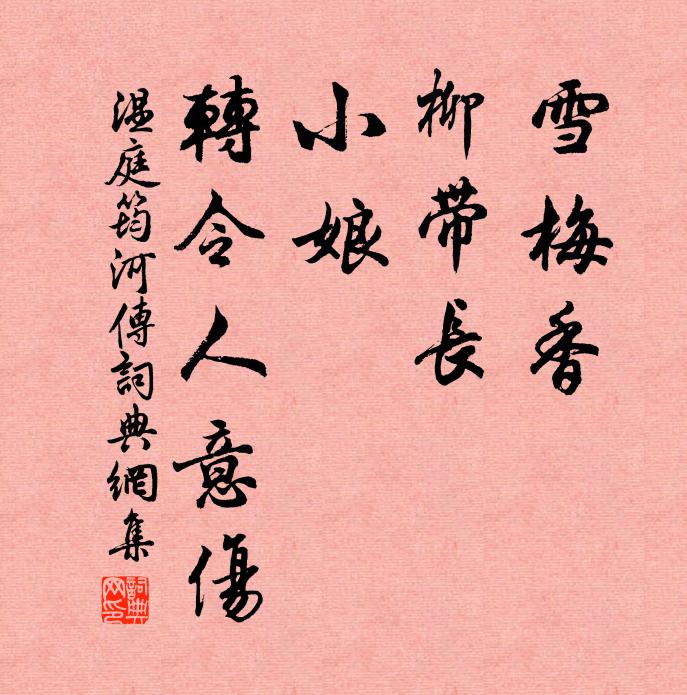 雪梅香
柳帶長
小娘
轉令人意傷
溫庭筠河傳詞典網集
詞典
网印